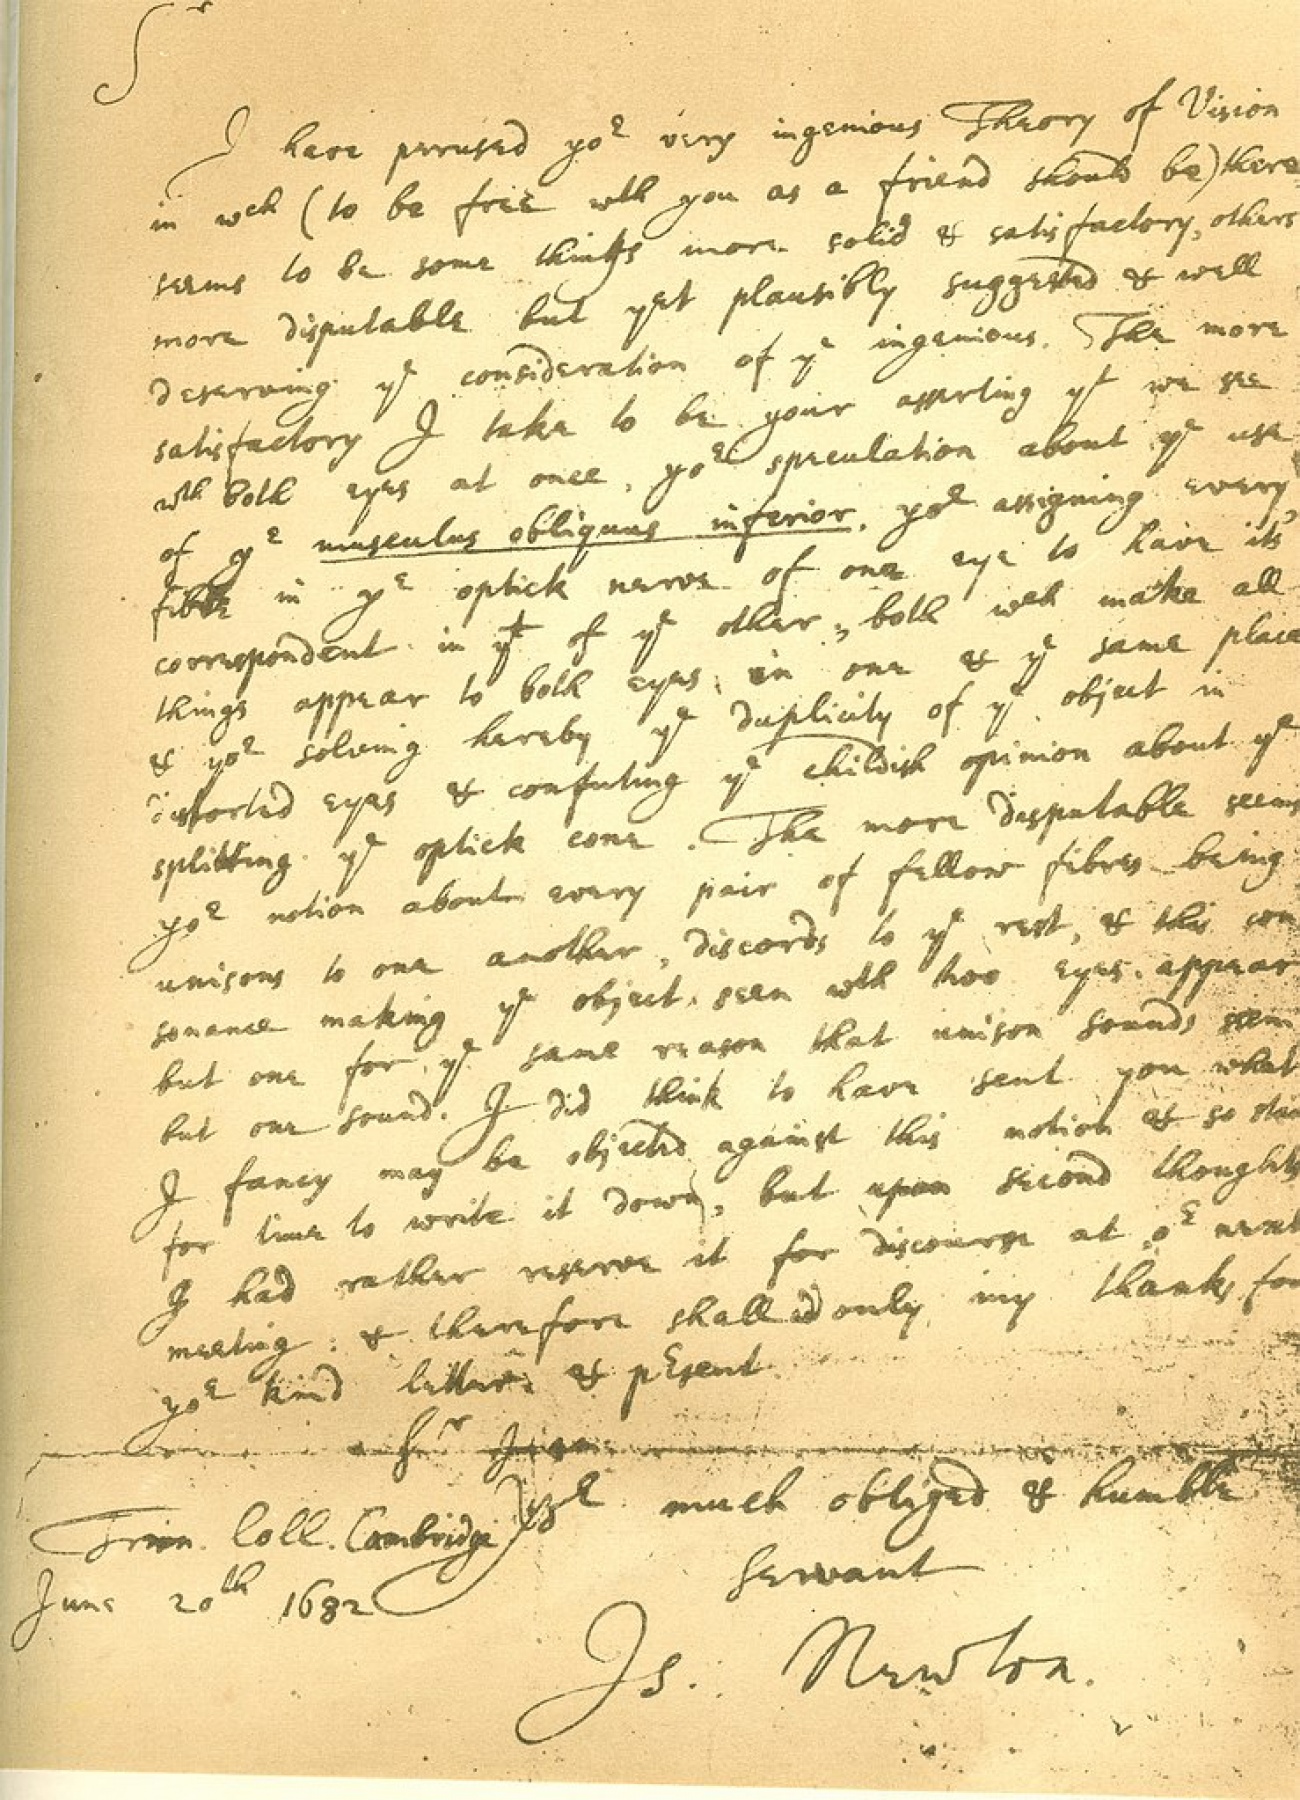 Sr
I have perused yor very ingenious Theory of Vision
in wch (to be free wth you as a friend should be) there
seems to be some things more solid & satisfactory, others
more disputable but yet plausibly suggested & well
deserving ye consideration of ye ingenious. The more
satisfactory I take to be your asserting yt we see
wth both eyes at once, yor speculation about ye use
of ye musculus obliquus inferior, yor assigning every
fibre in ye optick nerve of one eye to have its
correspondent in yt of ye other, both wch make all
things appear to both eyes in one & ye same place
& yor solving hereby ye duplicity of ye object in
distorted eyes & confuting ye childish opinion about ye
splitting ye optick cone. The more disputable seems
yor notion about every pair of fellow fibres being
unisons to one another, discords to ye rest, & this con
sonance making ye object seen wth two eyes appear
but one for ye same reason that unison sounds seem
but one sound. I did think to have sent you what
I fancy may be objected against this notion & so staid
for time to write it down, but upon second thoughts
I had rather reserve it for discourse at or next
meeting: & therefore shall ad only my thanks for
yor kind letter & prsent.
Sr I am
Trin. Coll. Cambridge Yor much obliged & humble
June 20th 1682 Servant
Is. Newton.